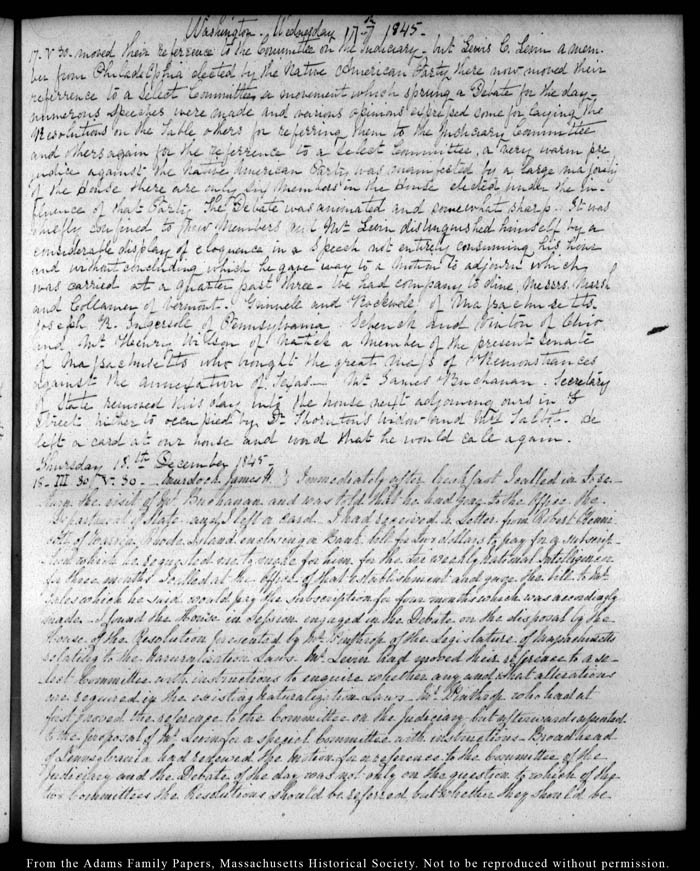 Washington. Wednesday 17th 1845.
17. V. 30. moved their reference to the Committee on the Judiciary - but Lewis C. Levin a mem-
ber from Philadelphia elected by the Native American Party there now moved their
referrence to a Select Committee, a movement which sprung a Debate for the day -
numerous speeches were made and various opinions expressed some for laying the
Resolutions on the table others for referring them to the Judiciary Committee
and others again for the referrence to a Select Committee, a very warm pre-
judice against the Native American Party was manifested by a large majority
of the House there are only six members in the House elected under the in-
fluence of that Party. The Debate was animated and somewhat sharp. It was
chiefly confined to new members and Mr Levin distinguished himself by a
considerable display of eloquence in a Speech not entirely consuming his hour
and without concluding which he gave way to a motion to adjourn which
was carried at a quarter past three - We had company to dine, Messrs. Marsh
and Collamer of Vermont. Grinnell and Rockwell of Massachusetts.
Joseph R. Ingersoll of Pennsylvania. Schenck and Vinton of Ohio
and Mr Henry Wilson of Natick a member of the present Senate
of Massachusetts who brought the great mass of Remonstrances
against the annexation of Texas - Mr James Buchanan. Secretary
of State removed this day into the house next adjoining ours in F
Street hitherto occupied by Dr Thornton's widow and Mrs Talbot. he
left a card at our house and word that he would call again.
Thursday 18.th December 1845.
18. III. 30. V. 30. Murdoch James H. } Immediately after breakfast I called in to re-
turn the visit of Mr Buchanan and was told that he had gone to the Office the
Department of State and I left a card. I had received a Letter from Robert
of Warren, Rhode Island enclosing a bank bill for two dollars to pay for a subscrip-
tion which he requested me to make for him, for the tri weekly National Intelligencer
for three months I called at the Office of that establishment and gave the bill to Mr
Gales which he said would pay the subscription for four months which was accordingly
made. I found the House in Session engaged in the Debate on the disposal by the
House of the Resolution presented by Mr Winthrop of the Legislature of Massachusetts
relating to the Naturalization Laws. Mr Levin had moved their reference to a se-
lect Committee with instructions to enquire whether any and what alterations
are required in the existing Naturalization Laws - Mr Winthrop who had at
first moved the reference to the Committee on the Judiciary but afterwards assented
to the proposal of Mr Levin for a special Committee with instructions - Broadhead
of Pennsylvania had renewed the Motion for a reference to the Committee of the
Judiciary and the Debate of the day was not only on the question to which of the
two Committees the Resolutions should be referred but whether they should be
From the Adams Family Papers, Massachusetts Historical Society. Not to be reproduced without permission.